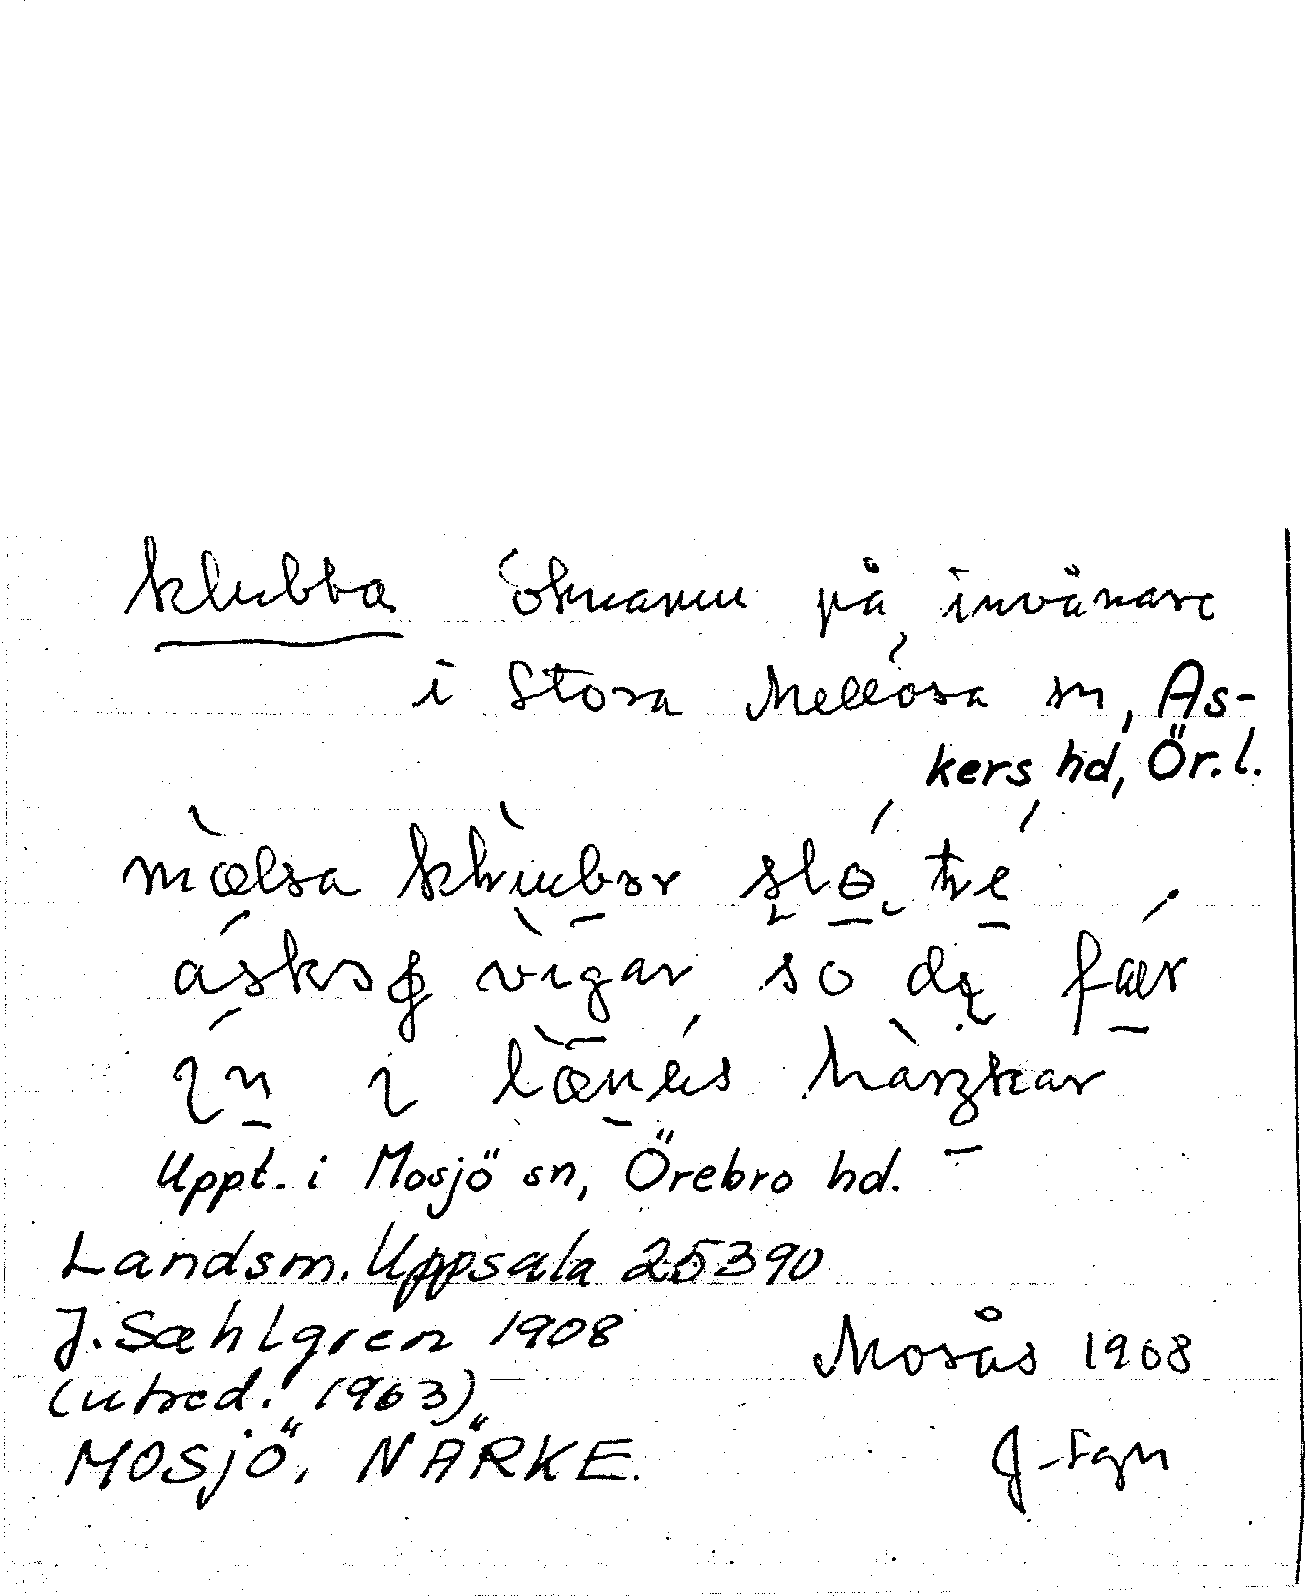 klubba öknamn på invånare
i Stora Mellösa sn, As-
kers hd, Ör.l.
mælsa klubər slɵ, tre
áskəɡ vigar, so de fær
in i lænəs harkar
Uppt. i Mosjö sn, Örebro hd.
Landsm. Uppsala 25390
J. Sæhlgren 1908
(utred. 1963)
Mosås 1908
MOSJÖ, NÄRKE.
J-fgn